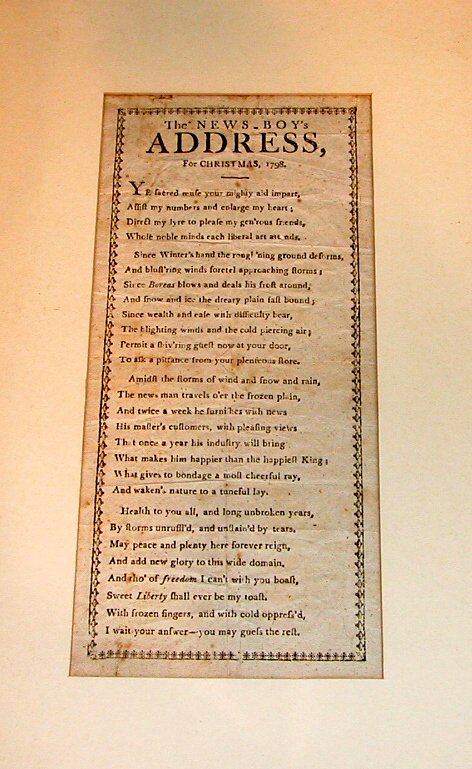 The NEWS-BOY's
ADDRESS,
For CHRISTMAS, 1798.
YE ſacred muſe your mighty aid impart,
Aſſiſt my numbers and enlarge my heart;
Direct my lyre to pleaſe my gen'rous friends,
Whoſe noble minds each liberal art att nds.
Since Winter's hand the rough'ning ground deforms,
And bluſt'ring winds foretel approaching ſtorms;
Since Boreas blows and deals his froſt around,
And ſnow and ice the dreary plain faſt bound;
Since wealth and eaſe with difficulty bear,
The blighting winds and the cold piercing air;
Permit a ſhiv'ring gueſt now at your door,
To aſk a pittance from your plenteous ſtore.
Amidſt the ſtorms of wind and ſnow and rain,
The news man travels o'er the frozen plain,
And twice a week he furniſhes with news
His maſter's cuſtomers, with pleaſing views
That once a year his induſtry will bring
What makes him happier than the happieſt King;
What gives to bondage a moſt cheerful ray,
And waken's nature to a tuneful lay.
Health to you all, and long unbroken years,
By ſtorms unruffl'd, and unſtain'd by tears.
May peace and plenty here forever reign,
And add new glory to this wide domain.
And tho' of freedom I can't with you boaſt,
Sweet Liberty ſhall ever be my toaſt.
With frozen fingers, and with cold oppreſs'd,
I wait your anſwer—you may gueſs the reſt.